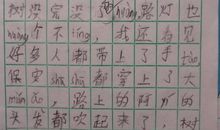 树没完没 路灯也
huàng个不tíng，我还看见
好多人都带上了手tào，
保安shū shū都穿上了大
mián ǎo，路上的阿 的
头发都吹起来了，树